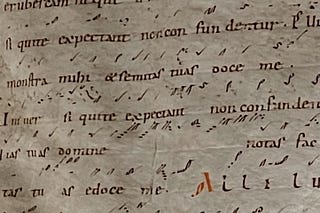 erubescam neque
si qui te expectant non con fun dentur. Ps Vi
monstra mihi & semitas tuas doce me.
Iniuer si qui te expectant non confunden
uias tuas domine notas fac
tas tu as edoce me. A l l e l u